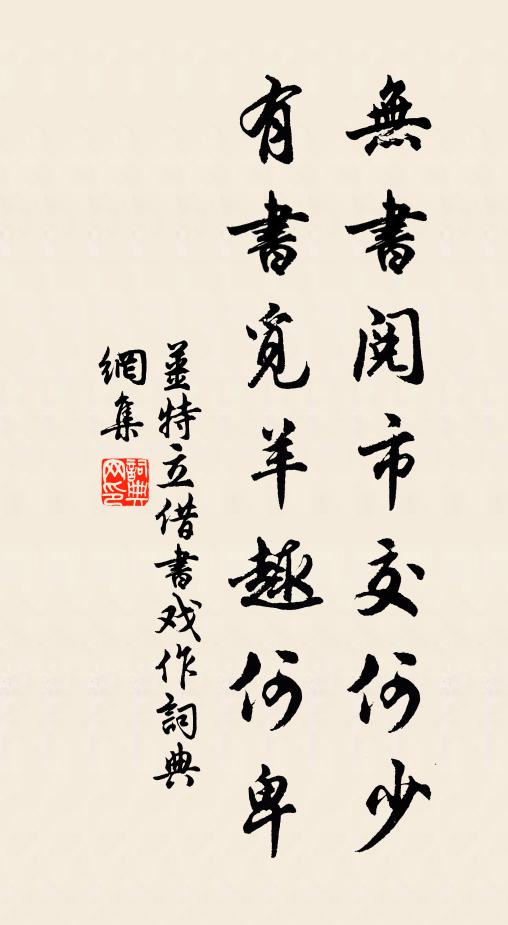 無書閱市交何少
有書覓羊趣何卑
姜特立借書戏作詞典
網集
詞典
网印